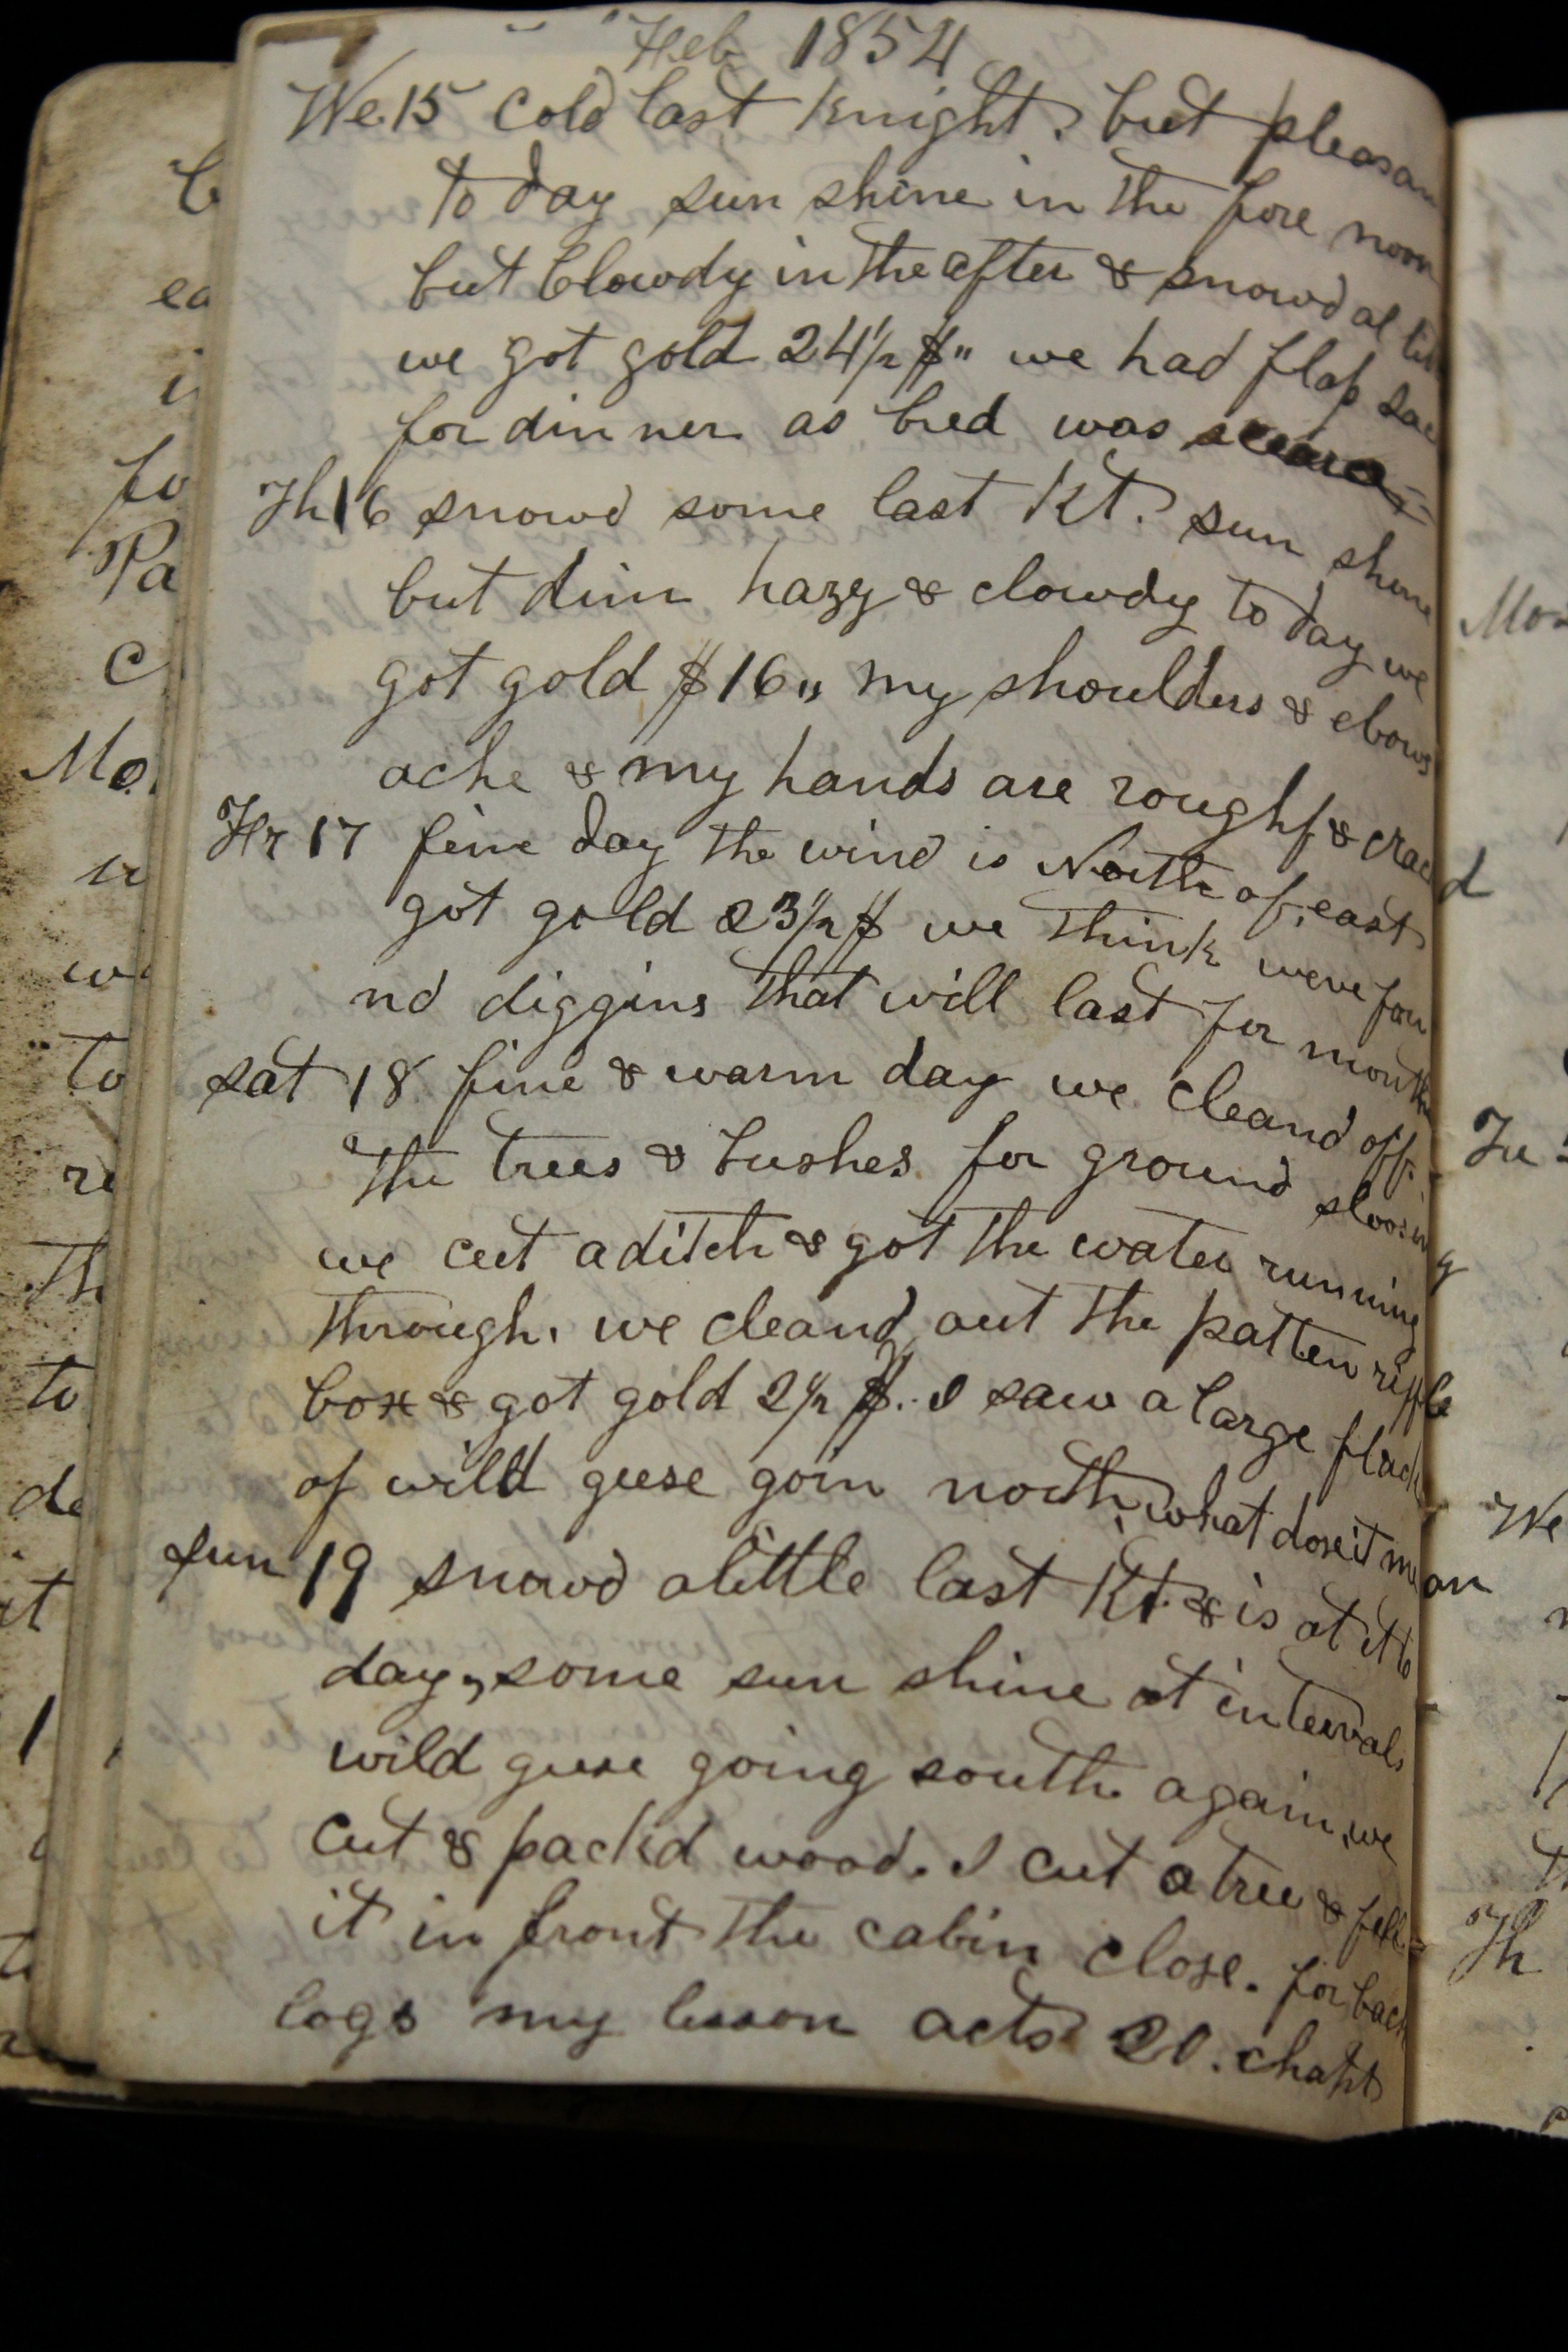 Feb 1854
We. 15 cold last Knight. but pleasan
to day sun shine in the fore noon
but Clowdy in the after & snowd at
we got gold 24 1/2 $" we had flap
for din ner as bred was
Th 16 snowd some last Kt. sun shine
but dim hazy & clowdy to day we
got gold $16" my shoulders & ebows
ache & my hands are rough & cracd
Fr 17 fine day the wind is North of east
got gold 23 1/2 $ we think weve fou
nd diggins that will last for months
sat 18 fine & warm day we cleand off
the trees & bushes for ground sloosing
we cut a ditch & got the water running
through. we cleand out the patten riffle
box & got gold 2 1/2 $. I saw a large flock
of wild geese goin north, what dose it mean
sun 19 snowd alittle last Kt. & is at it to
day, some sun shine at intervals
wild geese going south again, we
cut & packd wood. I cut a tree & fell
it in front the cabin close. for back
logs my lesson acts 20. chapt
Mo
Pa
fo
to
Th
to
Mo
Tu
We
Th